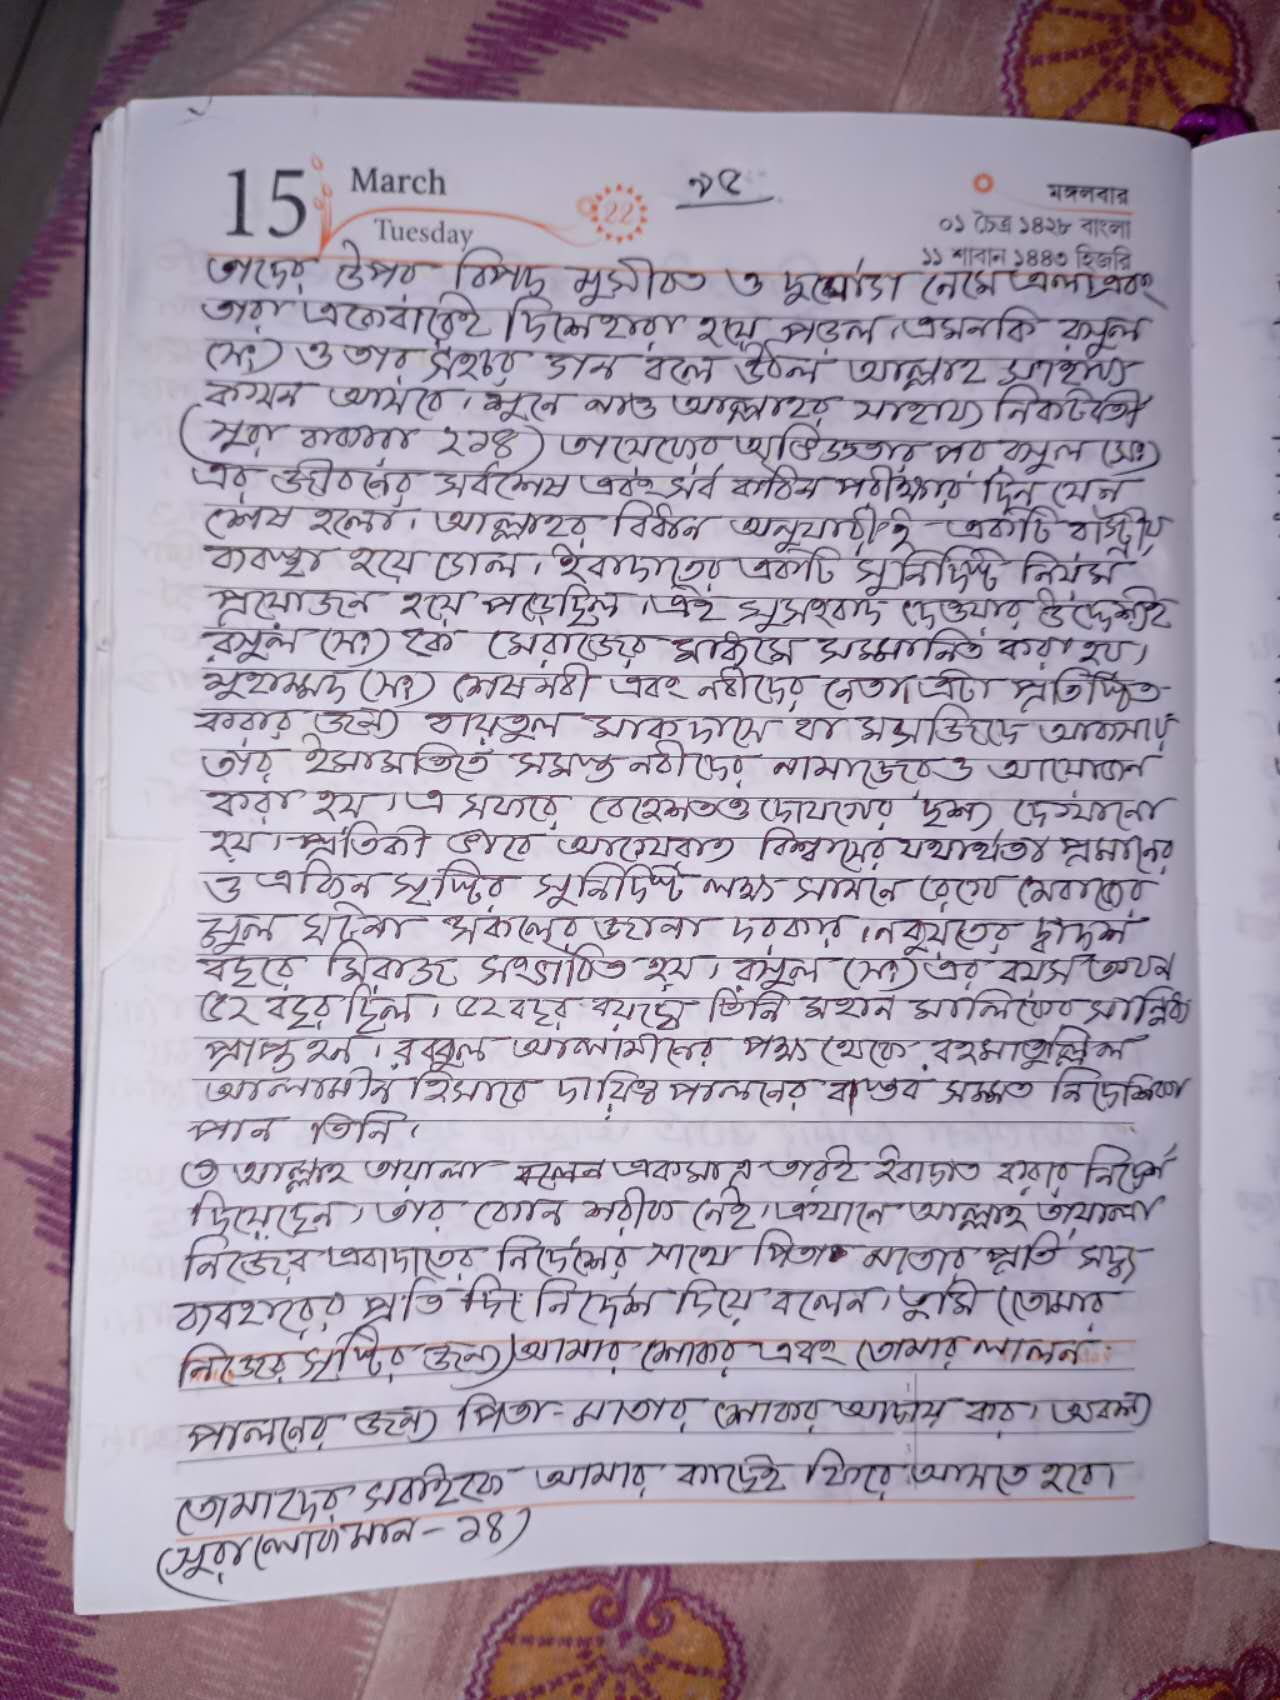 15
March
Tuesday
22
৯৫
মঙ্গলবার
০১ চৈত্র ১৪২৮ বাংলা
১১ শাবান ১৪৪৩ হিজরি
তাদের উপর বিপদ মুসীবত ও দুর্যোগ নেমে এলো এবং
তারা একেবারেই দিশেহারা হয়ে পড়ল। এমনকি রসুল
(সঃ) ও তার বলে উঠল আল্লাহর সাহায্য
কখন আসবে। শুনে নাও আল্লাহর সাহায্য নিকটবর্তী
(সুরা বাকারা ২১৪) তায়েফের অভিজ্ঞতার পর রসুল (সঃ)
এর জীবনের সর্বশেষ এবং সর্ব কঠিন পরীক্ষার দিন যেন
শেষ হলো। আল্লাহর বিধান অনুযায়ীই একটি রাস্ট্রীয়
ব্যবস্থা হয়ে গেল। ইবাদাতের একটি সুনির্দিষ্ট নিয়ম
প্রয়োজন হয়ে পড়েছিল। এই সুসংবাদ দেওয়ার উদ্দেশ্যেই
রসুল (সঃ) কে মেরাজের মাধ্যমে সম্মানিত করা হয়।
মুহাম্মদ (সঃ) শেষ নবী এবং নবীদের নেতা। এটা প্রতিষ্ঠিত
করার জন্য বায়তুল মাকদাসে বা মসজিদে আকসায়
তার ইমামতিতে সমস্ত নবীদের নামাজেরও আয়োজন
করা হয়। এ সফরে বেহেশতও দোযখের দৃশ্য দেখানো
হয়। প্রতিকী ভাবে আখেরাত বিশ্বাসের যথার্থতা প্রমানের
ও একিন সৃষ্টির সুনির্দিষ্ট লক্ষ্য সামনে রেখে মেরাজের
মুল ঘটনা সকলের জানা দরকার। নবুয়তের দ্বাদশ
বছরে মিরাজ সংগঠিত হয়। রসুল (সঃ) এর বয়স তখন
৫২ বছর ছিল। ৫২ বছর বয়সে তিনি মহান মালিকের সান্নিধ্য
প্রাপ্ত হন। রব্বুল আলামীনের পক্ষ থেকে রহমাতুল্লিল
আলামীন হিসাবে দায়িত্ব পালনের বাস্তব সম্মত নির্দেশিকা
পান তিনি।
আল্লাহ তায়ালা একমাত্র তারই ইবাদাত করার নির্দেশ
দিয়েছেন। তার কোন শরীক নেই। এখানে আল্লাহ তায়ালা
নিজের এবাদাতের নির্দেশের সাথে পিতা মাতার প্রতি সদ্ব্য
ব্যবহারের প্রতি নির্দেশ দিয়ে বলেন। তুমি (তোমার
নিজের সৃষ্টির জন্য) আমার শোকর এবং তোমার লালন
পালনের জন্য পিতা-মাতার শোকর আদায় কর। অবশ্য
তোমাদের সবাইকে আমার কাছেই ফিরে আসতে হবে।
(সুরা লোকমান - ১৪)